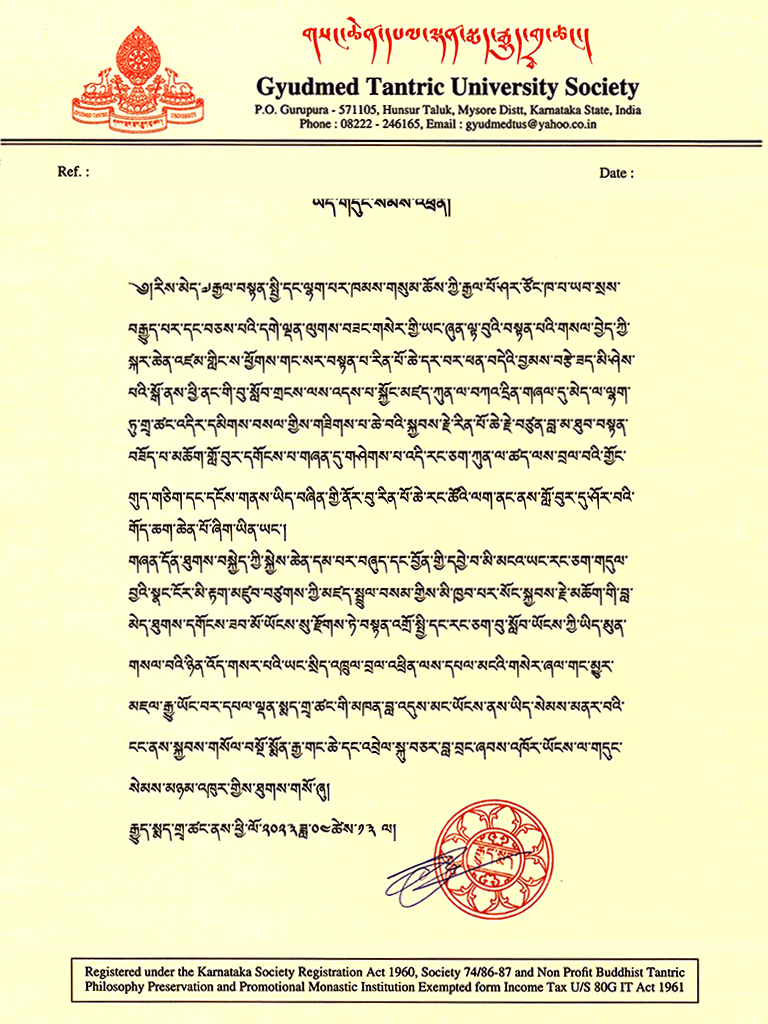 Gyudmed Tantric University Society
P.O. Gurupura - 571105, Hunsur Taluk, Mysore Distt, Karnataka State, India
Phone : 08222 - 246165, Email : gyudmedtus@yahoo.co.in
GYUDMED TANTRIC UNIVERSITY
Ref. :
Date :
ཡིད་གདུང་སེམས་འཕྲིན།
༄།རིས་མེད་རྒྱལ་བསྟན་སྤྱི་དང་ལྷག་པར་ཁམས་གསུམ་ཆོས་ཀྱི་རྒྱལ་པོ་ཤར་ཙོང་ཁ་པ་ཡབ་སྲས་
བརྒྱུད་པར་དང་བཅས་པའི་དགེ་ལྡན་ལུགས་བཟང་གསེར་གྱི་ཡང་ཞུན་ལྟ་བུའི་བསྟན་པའི་གསལ་བྱེད་ཀྱི་
སྐར་ཆེན་འཛམ་གླིང་ས་ཕྱོགས་གང་སར་བསྟན་པ་རིན་པོ་ཆེ་དར་བར་ཕན་བདེའི་བྱམས་བརྩེ་ཟད་མི་ཤེས་
པའི་སྒོ་ནས་ཕྱི་ནང་གི་བུ་སློབ་གྲངས་ལས་འདས་པ་སྐྱོང་མཛད་ཀུན་ལ་བཀའ་དྲིན་གཞལ་དུ་མེད་ལ་ལྷག་
ཏུ་གྲྭ་ཚང་འདིར་དམིགས་བསལ་གྱིས་གཟིགས་པ་ཆེ་བའི་སྐྱབས་རྗེ་རིན་པོ་ཆེ་རྗེ་བཙུན་བླ་མ་ཐུབ་བསྟན་
བཟོད་པ་མཆོག་གློ་བུར་དགོངས་པ་གཞན་དུ་གཤེགས་པ་འདི་རང་ཅག་ཀུན་ལ་ཚད་ལས་བྲལ་བའི་གྱོང་
གུད་གཅིག་དང་དངོས་གནས་ཡིད་བཞིན་གྱི་ནོར་བུ་རིན་པོ་ཆེ་རང་ཚོའི་ལག་ནང་ནས་གློ་བུར་དུ་ཤོར་བའི་
གོད་ཆག་ཆེན་པོ་ཞིག་ཡིན་ཡང་།
གཞན་དོན་ཐུགས་བསྐྱེད་ཀྱི་སྐྱེས་ཆེན་དམ་པར་བཞུད་དང་བྱོན་གྱི་དབྱེ་བ་མི་མངའ་ཡང་རང་ཅག་གདུལ་
བྱའི་སྣང་ངོར་མི་རྟག་མཛུབ་བཙུགས་ཀྱི་མཛད་སྤྲུལ་བསམ་གྱིས་མི་ཁྱབ་པར་སོང་སྐྱབས་རྗེ་མཆོག་གི་བླ་
མེད་ཐུགས་དགོངས་ཟབ་མོ་ཡོངས་སུ་རྫོགས་ཏེ་བསྟན་འགྲོ་སྤྱི་དང་རང་ཅག་བུ་སློབ་ཡོངས་ཀྱི་ཡིད་མུན་
གསལ་བའི་ཉིན་འོད་གསར་པའི་ཡང་སྲིད་འཁྲུལ་བྲལ་འཕྲིན་ལས་དཔལ་མངའི་གསེར་ཞལ་གང་མྱུར་
མཇལ་རྒྱུ་ཡོང་བར་དཔལ་ལྡན་སྨད་གྲྭ་ཚང་གི་མཁན་བླ་འདུས་མང་ཡོངས་ནས་ཡིད་སེམས་མནར་བའི་
ངང་ནས་སྐྱབས་གསོལ་བསྔོ་སྨོན་རྒྱ་གང་ཆེ་དང་འབྲེལ་སྐུ་བཅར་བླ་བྲང་ཞབས་འཁོར་ཡོངས་ལ་གདུང་
སེམས་མཉམ་འཁུར་གྱིས་ཐུགས་གསོ་ཞུ།
རྒྱུད་སྨད་གྲྭ་ཚང་ནས་ཕྱི་ལོ་༢༠༢༣ཟླ་༠༤ཚེས་༡༣ ལ།
རྒྱུད་སྨད
Registered under the Karnataka Society Registration Act 1960, Society 74/86-87 and Non Profit Buddhist Tantric
Philosophy Preservation and Promotional Monastic Institution Exempted form Income Tax U/S 80G IT Act 1961